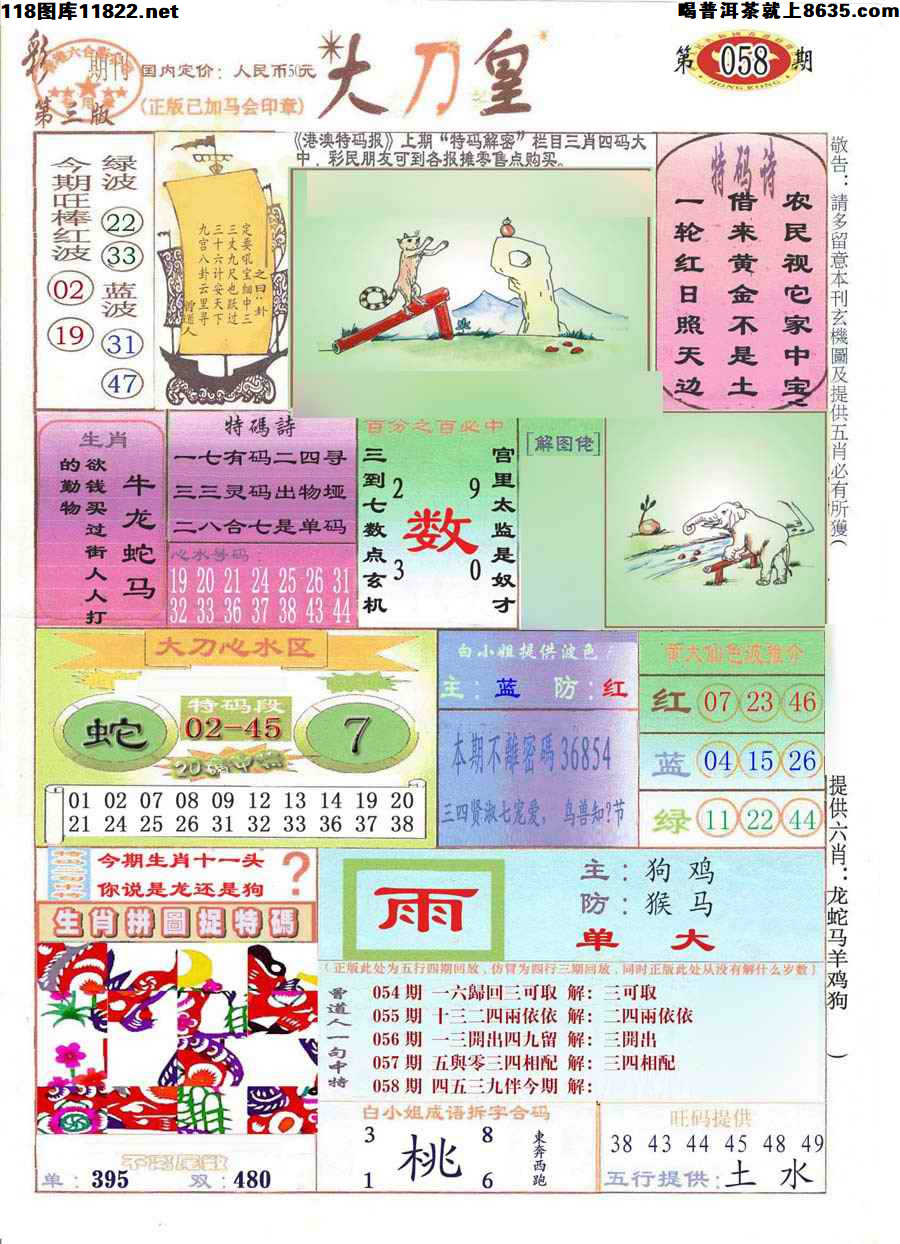 118图库11822.net
喝普洱茶就上8635.com
彩
期刊
第三版
国内定价：人民币50元
(正版已加马会印章)
大刀皇
第058期
HONG KONG
《港澳特码报》上期“特码解密”栏目三肖四码大
中，彩民朋友可到各报摊零售点购买。
今期旺棒红波
02
19
绿波
22
33
蓝波
31
47
定要吼宝细中三
三丈九尺也跃过
三十六计安天下
九宫八卦云里寻
之曰：卦
曾道人
特码诗
农民视它家中宝
借来黄金不是土
一轮红日照天边
敬告：請多留意本刊玄機圖及提供五肖必有所獲(
生肖
牛龙蛇马
欲钱买过街人人打
的動物
特碼詩
一七有码二四寻
三三灵码出物垭
二八合七是单码
心水号码：
19 20 21 24 25 26 31
32 33 36 37 38 43 44
百分之百必中
三到七数点玄机
2 9
数
3 0
宫里太监是奴才
[解图佬]
大刀心水区
蛇
特码段
02-45
7
20碼中特
01 02 07 08 09 12 13 14 19 20
21 24 25 26 31 32 33 36 37 38
白小姐提供波色
主：蓝 防：红
本期不離密碼36854
三四贤淑七宠爱，鸟兽知?节
黄大仙色波推介
红 07 23 46
蓝 04 15 26
绿 11 22 44
提供六肖：龙蛇马羊鸡狗 )
今期生肖十一头
你说是龙还是狗
?
生肖拼圖捉特碼
单：395 双：480
雨
主：狗鸡
防：猴马
单 大
(正版此处为五行四期回放，仿冒为四行三期回放，同时正版此处从没有解什么岁数)
曾道人一句中特
054期 一六歸回三可取 解：三可取
055期 十三二四兩依依 解：二四兩依依
056期 一三開出四九留 解：三開出
057期 五與零三四相配 解：三四相配
058期 四五三九伴今期 解：
白小姐成语拆字合码
3 8
桃
1 6
東奔西跑
旺码提供
38 43 44 45 48 49
五行提供：土 水